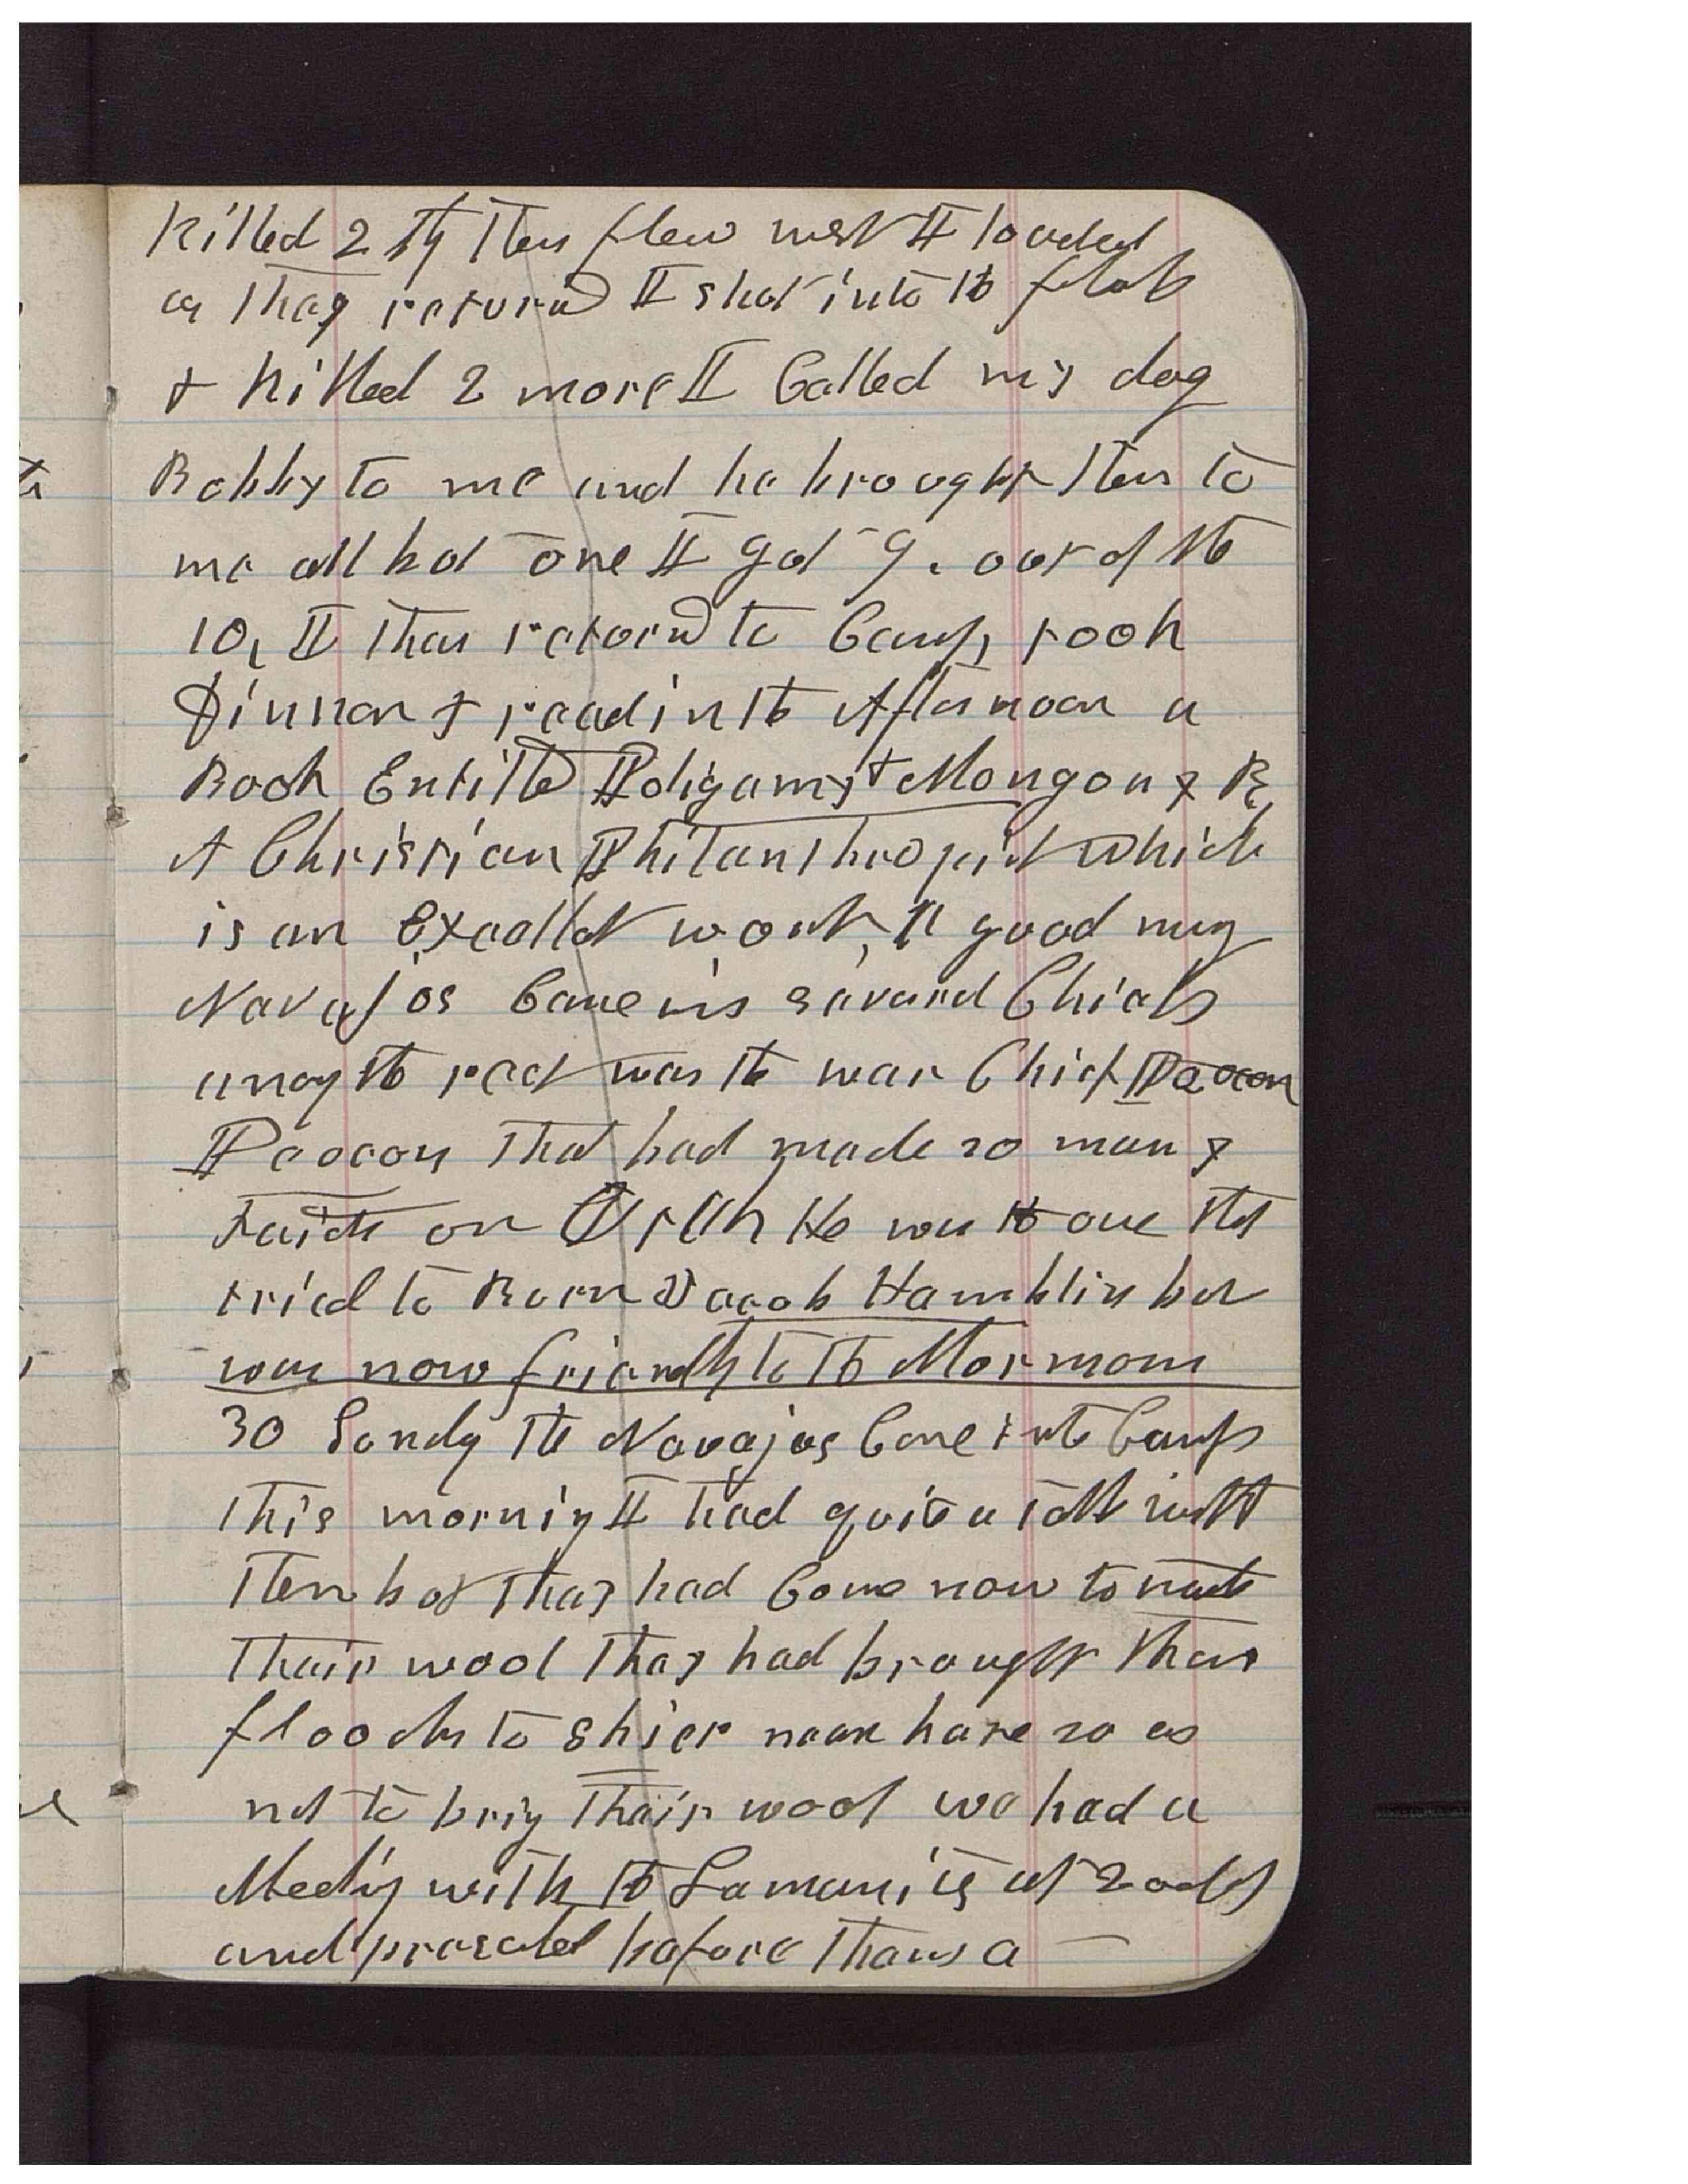 Killed 2 They then flew west I loaded
as they returnd I shot into the flock
& killed 2 more I Called my dog
Bobby to me and he brought them to
me all but one I got 9. out of the
10, I then returnd to Camp, took
Dinner & read in the Afternoon a
Book Entitled Poligamy & Monogamy By
A Christian Philanthropist which
is an Excellet work, A good many
Navajos Came in several Chiefs
amog the rest was the war Chief Peocon
Peocon that had made so many
raids on Utah He was the one that
tried to Burn Jacob Hamblin but
was now friendly to the Mormons
30 Sundy The Navajos Came into Camp
this mornig I had quite a talk with
them but they had Come now to
their wool They had brought their
flocks to shier near here so as
not to brig their wool we had a
Meetig with the Lamanites at 2 oclok
and presented before them a —